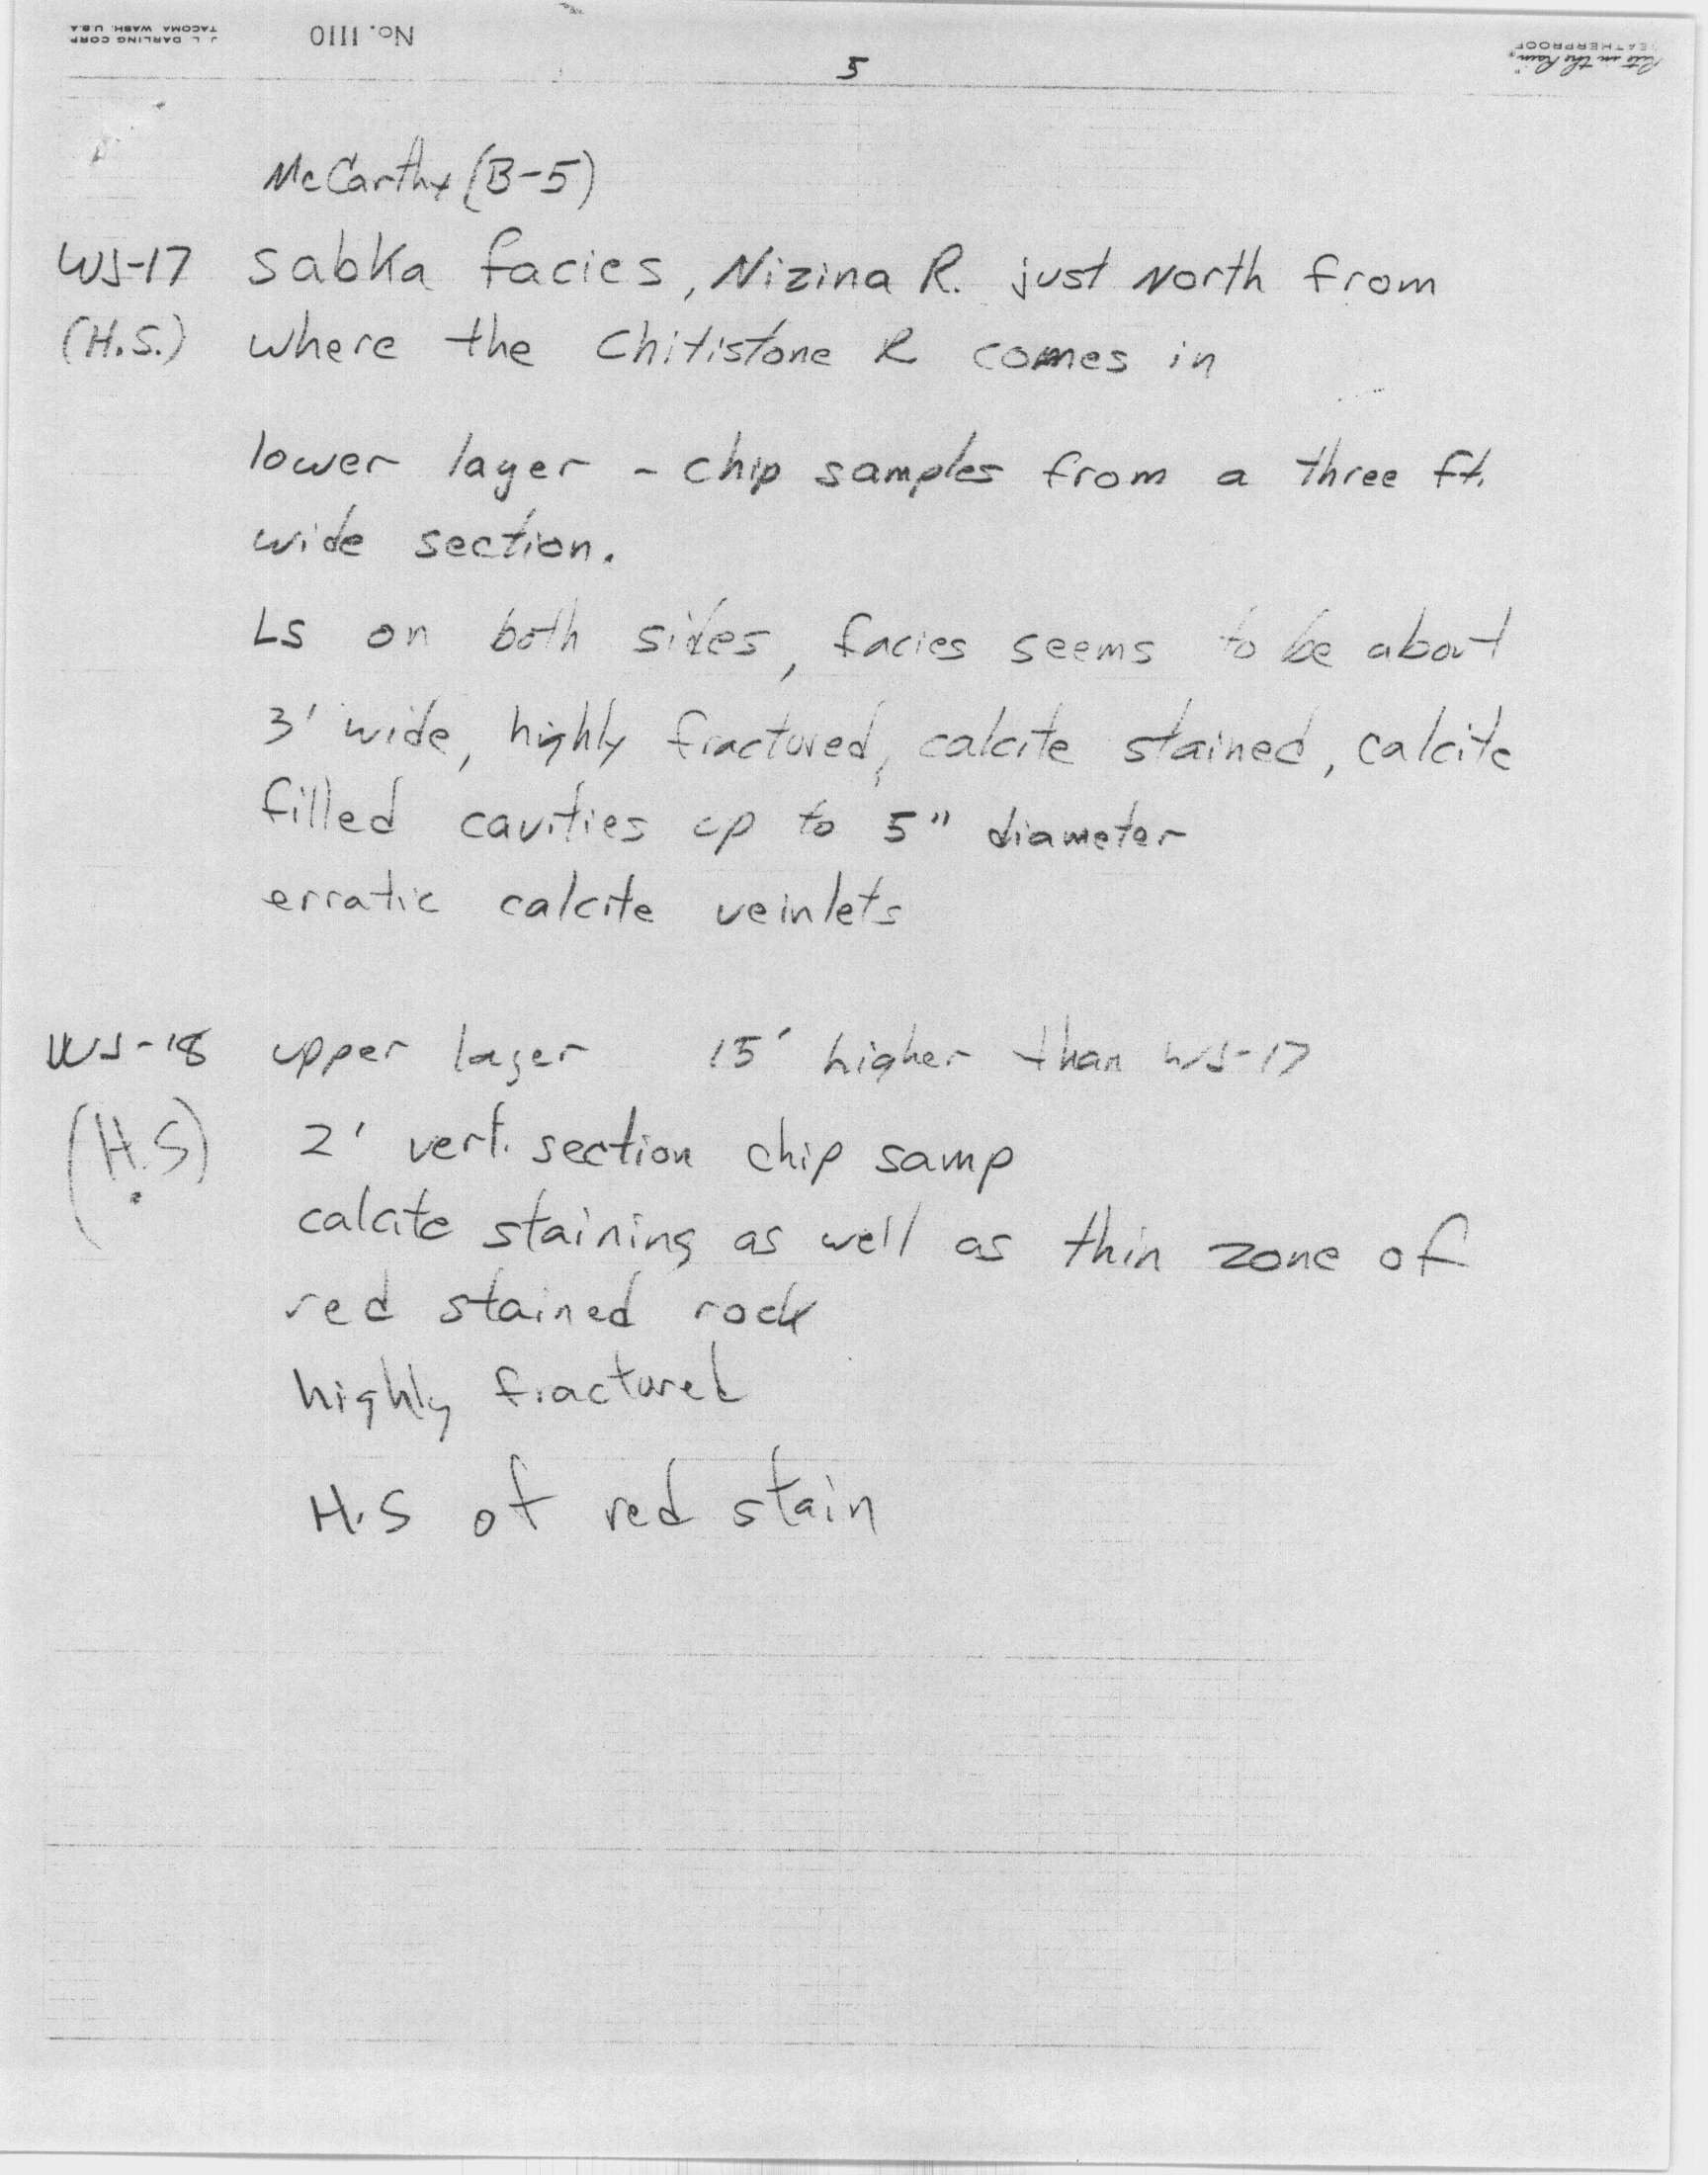 J. L. DARLING CORP
TACOMA WASH. U.S.A
No. 1110
Rite in the Rain
WEATHERPROOF
5
McCarthy (B-5)
WJ-17 sabka facies, Nizina R. just North from
(H.S.) where the Chitistone R comes in
lower layer - chip samples from a three ft.
wide section.
Ls on both sides, facies seems to be about
3' wide, highly fractured, calcite stained, calcite
filled cavities up to 5" diameter
erratic calcite veinlets
WJ-18 upper layer 15' higher than WJ-17
(H.S) 2' vert. section chip samp
calcite staining as well as thin zone of
red stained rock
highly fractured
H.S of red stain